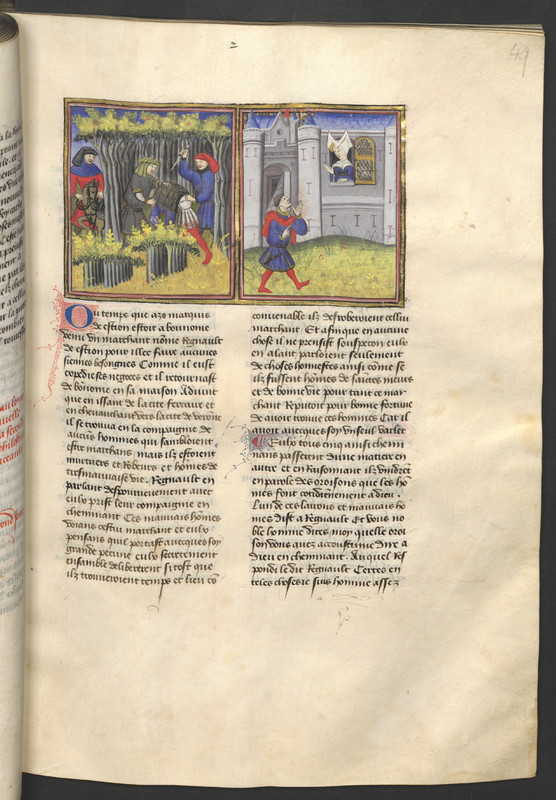 49
Ou temps que azo marquis
de estion estoit a bonnome
venu vn marchant nōme Regnault
de estion pour illec faire aucunes
siennes besongnes Comme il eust
expedie ses negoces et il retournast
de bōnome en sa maison Aduint
que en issant de la cite ferrare et
en cheuauchant vers la cite de verone
il se trouua en la compaignie de
aucūs hommes qui sambloient
estre marchans mais ilz estoient
murtriers et Robeurs et hōmes de
tresmauuaise vie. Regnault en
parlant desporueuement auec
eulx prist leur compaignie en
cheminant Ces mauuais hōmes
voians cestui marchant et eulx
pensans quil portast auecques soy
grande pecune eulx secretement
ensamble delibererent si tost que
ilz trouueroient temps et lieu cō
conuenable ilz desroberoient cellui
marchant. Et afin que en aucune
chose il ne prensist souspecon eulx
en alant parloient seulement
de choses honnestes ainsi cōme se
ilz fussent hōmes de sainctes meurs
et de bonne vie pour tant ce mar
chant Reputoit pour bonne fortune
de auoir trouue ces hommes Car il
auoit auecques soy vn seul varlet
Eulx tous cinq ainsi chemi
nans passerent dune matiere en
autre et en Raisonnant ilz vindrēt
en parole des oroisons que les hō
mes font cotidiennement a dieu.
Lun de ces larrons et mauuais hō
mes dist a Regnault Et vous no
ble homme dictes moy quelle oroi
son vous auez accoustume dire a
dieu en cheminant. Auquel Res
pondi le dit Regnault Certes en
teles choses ie suis homme assez